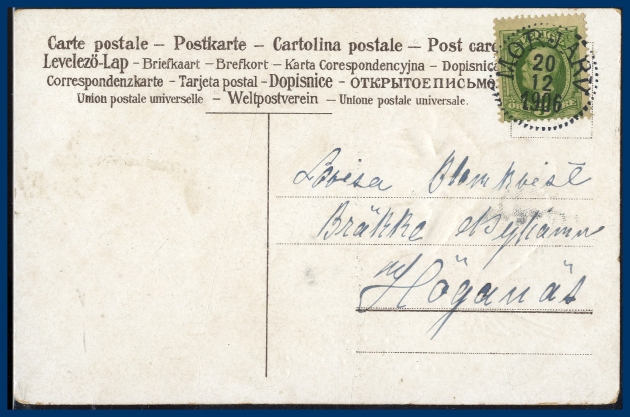 Carte postale – Postkarte – Cartolina postale – Post car
Levelező-Lap – Briefkaart – Brefkort – Karta Corespondencyjna – Dopisnica
Correspondenzkarte – Tarjeta postal – Dopisnice – ОТКРЫТОЕ ПИСЬМО
Union postale universelle – Weltpostverein – Unione postale universale.
20
12
1906
Lovisa Blomkvist
Bräkke
Höganäs